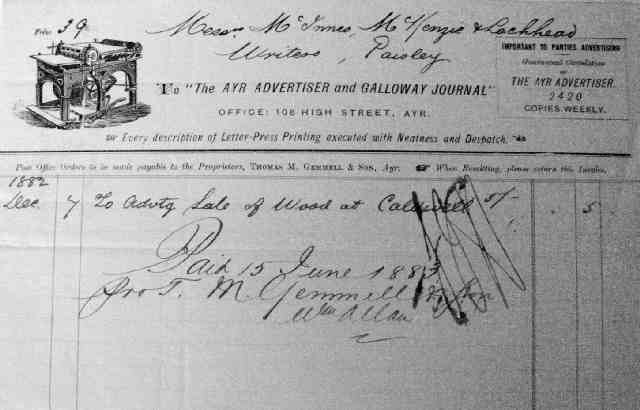 Folio 39
Messrs McInnes, McKenzie & Lochhead
Writers, Paisley
To "The AYR ADVERTISER and GALLOWAY JOURNAL"
OFFICE: 106 HIGH STREET, AYR.
Every description of Letter-Press Printing executed with Neatness and Despatch.
IMPORTANT TO PARTIES ADVERTISING
Guaranteed Circulation
OF
THE AYR ADVERTISER.
2420
COPIES WEEKLY.
Post Office Orders to be made payable to the Proprietors, THOMAS M. GEMMELL & SON, Ayr. When Remitting, please return this Invoice.
1882
Dec. 7 To Advtg Sale of Wood at Caldwell 5/- 5
Paid 15 June 1883
pro T. M. Gemmell & Son
Wm Allan